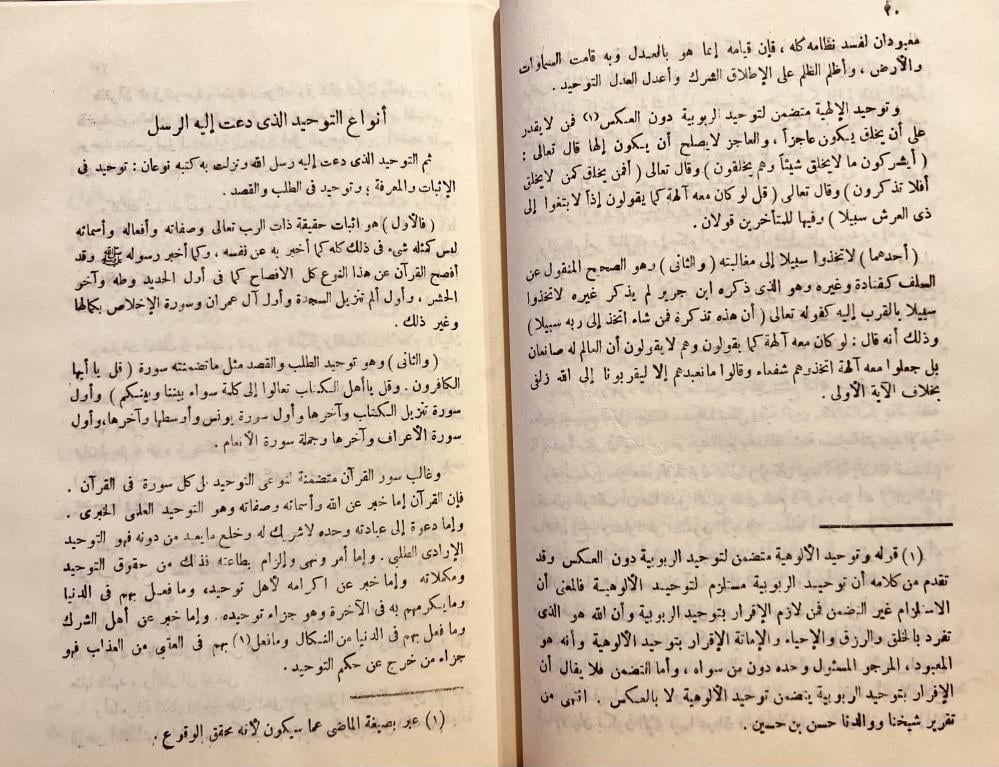 ٢٠
معبودان لفسد نظامه كله ، فإن قيامه إنما هو بالعدل وبه قامت السماوات
والأرض ، وأظلم الظلم على الإطلاق الشرك وأعدل العدل التوحيد .
وتوحيد الإلهية متضمن لتوحيد الربوبية دون العكس (١) فمن لايقدر
على أن يخلق يكون عاجزاً ، والعاجز لايصلح أن يكون إلها قال تعالى :
( أيشركون ما لايخلق شيئاً وهم يخلقون ) وقال تعالى ( أفمن يخلق كمن لايخلق
أفلا تذكرون ) وقال تعالى ( قل لو كان معه آلهة كما يقولون إذاً لابتغوا إلى
ذى العرش سبيلا ) وفيها للمتأخرين قولان .
( أحدهما ) لاتخذوا سبيلا إلى مغالبته ( والثانى ) وهو الصحيح المنقول عن
السلف كقتادة وغيره وهو الذى ذكره ابن جرير لم يذكر غيره لاتخذوا
سبيلا بالقرب إليه كقوله تعالى ( أن هذه تذكرة فمن شاء اتخذ إلى ربه سبيلا )
وذلك أنه قال : لو كان معه آلهة كما يقولون وهم لايقولون أن العالم له صانعان
بل جعلوا معه آلهة اتخذوهم شفعاء وقالوا مانعبدهم إلا ليقربونا إلى الله زلفى
بخلاف الآية الأولى .
(١) قوله وتوحيد الألوهية متضمن لتوحيد الربوبية دون العكس وقد
تقدم من كلامه أن توحيد الربوبية مستلزم لتوحيد الألوهية فالمعنى أن
الاستلزام غير التضمن فمن لازم الإقرار بتوحيد الربوبية وأن الله هو الذى
تفرد بالخلق والرزق والإحياء والإماتة الإقرار بتوحيد الألوهية وأنه هو
المعبود ، المرجو المسئول وحده دون من سواه ، وأما التضمن فلا يقال أن
الإقرار بتوحيد الربوبية يتضمن توحيد الألوهية لا بالعكس . انتهى من
تقرير شيخنا ووالدنا حسن بن حسين .
أنواع التوحيد الذى دعت إليه الرسل
ثم التوحيد الذى دعت إليه رسل الله ونزلت به كتبه نوعان : توحيد فى
الإثبات والمعرفة ، وتوحيد فى الطلب والقصد .
( فالأول ) هو اثبات حقيقة ذات الرب تعالى وصفاته وأفعاله وأسمائه
ليس كمثله شىء فى ذلك كله كما أخبر به عن نفسه ، وكما أخبر رسوله ﷺ وقد
أفصح القرآن عن هذا النوع كل الافصاح كما فى أول الحديد وطه وآخر
الحشر ، وأول ألم تنزيل السجدة وأول آل عمران وسورة الإخلاص بكمالها
وغير ذلك .
( والثانى ) وهو توحيد الطلب والقصد مثل ماتضمنته سورة ( قل يا أيها
الكافرون . وقل ياأهل الكتاب تعالوا إلى كلمة سواء بيننا وبينكم ) وأول
سورة تنزيل الكتاب وآخرها وأول سورة يونس وأوسطها وآخرها، وأول
سورة الأعراف وآخرها وجملة سورة الأنعام .
وغالب سور القرآن متضمنة لنوعى التوحيد بل كل سورة فى القرآن .
فإن القرآن إما خبر عن الله وأسمائه وصفاته وهو التوحيد العلمى الخبرى .
وإما دعوة إلى عبادته وحده لاشريك له وخلع مايعبد من دونه فهو التوحيد
الإرادى الطلبى . وإما أمر ونهى وإلزام بطاعته فذلك من حقوق التوحيد
ومكملاته وإما خبر عن اكرامه لأهل توحيد، ومافعل بهم فى الدنيا
ومايكرمهم به فى الآخرة وهو جزاء توحيده . وإما خبر عن أهل الشرك
وما فعل بهم فى الدنيا من النكال ومافعل (١) بهم فى العقبى من العذاب فهو
جزاء من خرج عن حكم التوحيد .
(١) عبر بصيغة الماضى عما سيكون لأنه محقق الوقوع .